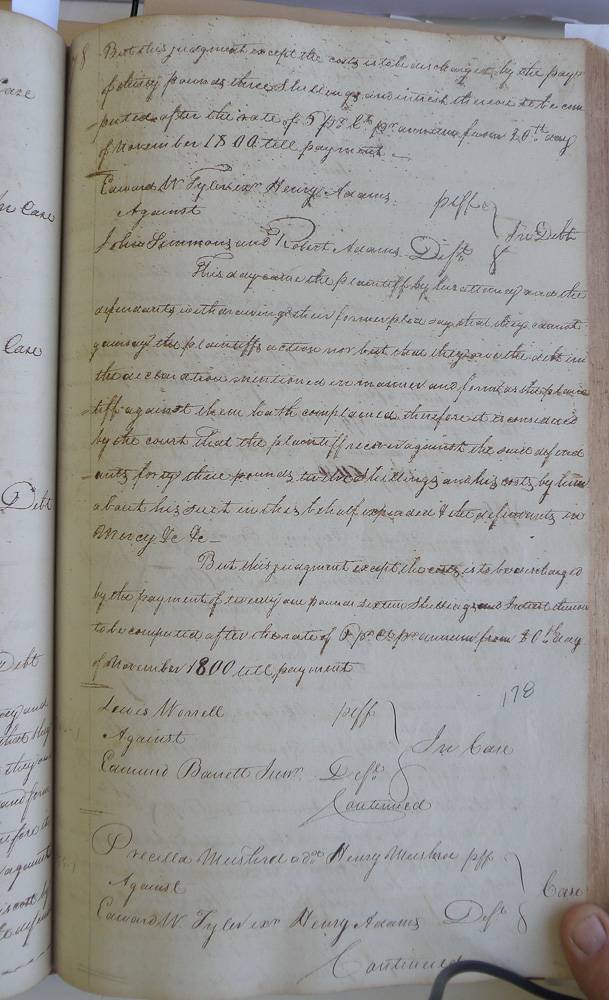 But this judgment except the costs is to be discharged by the paym
of thirty pounds three Shillings and interest thereon to be com
puted after the rate of 5 pr. Ct. pr. annum from 20th day
of November 1800 till payment —
Edward W Tyler exr Henry Adams. plff
Against
In Debt
John Simmons and Robert Adams Defts
This day came the plaintiff by his attorney and the
defendants withdrawing their former plea say that they cannot
gainsay the plaintiffs action nor but that they owe the debt in
the declaration mentioned in manner and form as the plain
tiff against them hath complained therefore it is considered
by the court That the plaintiff recover against the said defend
ants forty three pounds twelve Shillings and his costs by him
about his suit in this behalf expended & the defendants in
Mercy &c &c —
But this judgment except the costs is to be discharged
by the payment of twenty one pounds sixteen Shillings and Interest thereon
to be computed after the rate of 5 pr. Ct. pr annum from 20th day
of November 1800 till payment
178
Lewis Worrell plff
Against
In Case
Edmund Barrett Junr. Deft.
Continued
Precilla Mushroe adx Henry Mushroe plff
Against
Case
Edward W. Tyler exr Henry Adams Deft
Continued
Case
In Case
Case
Debt
Debt